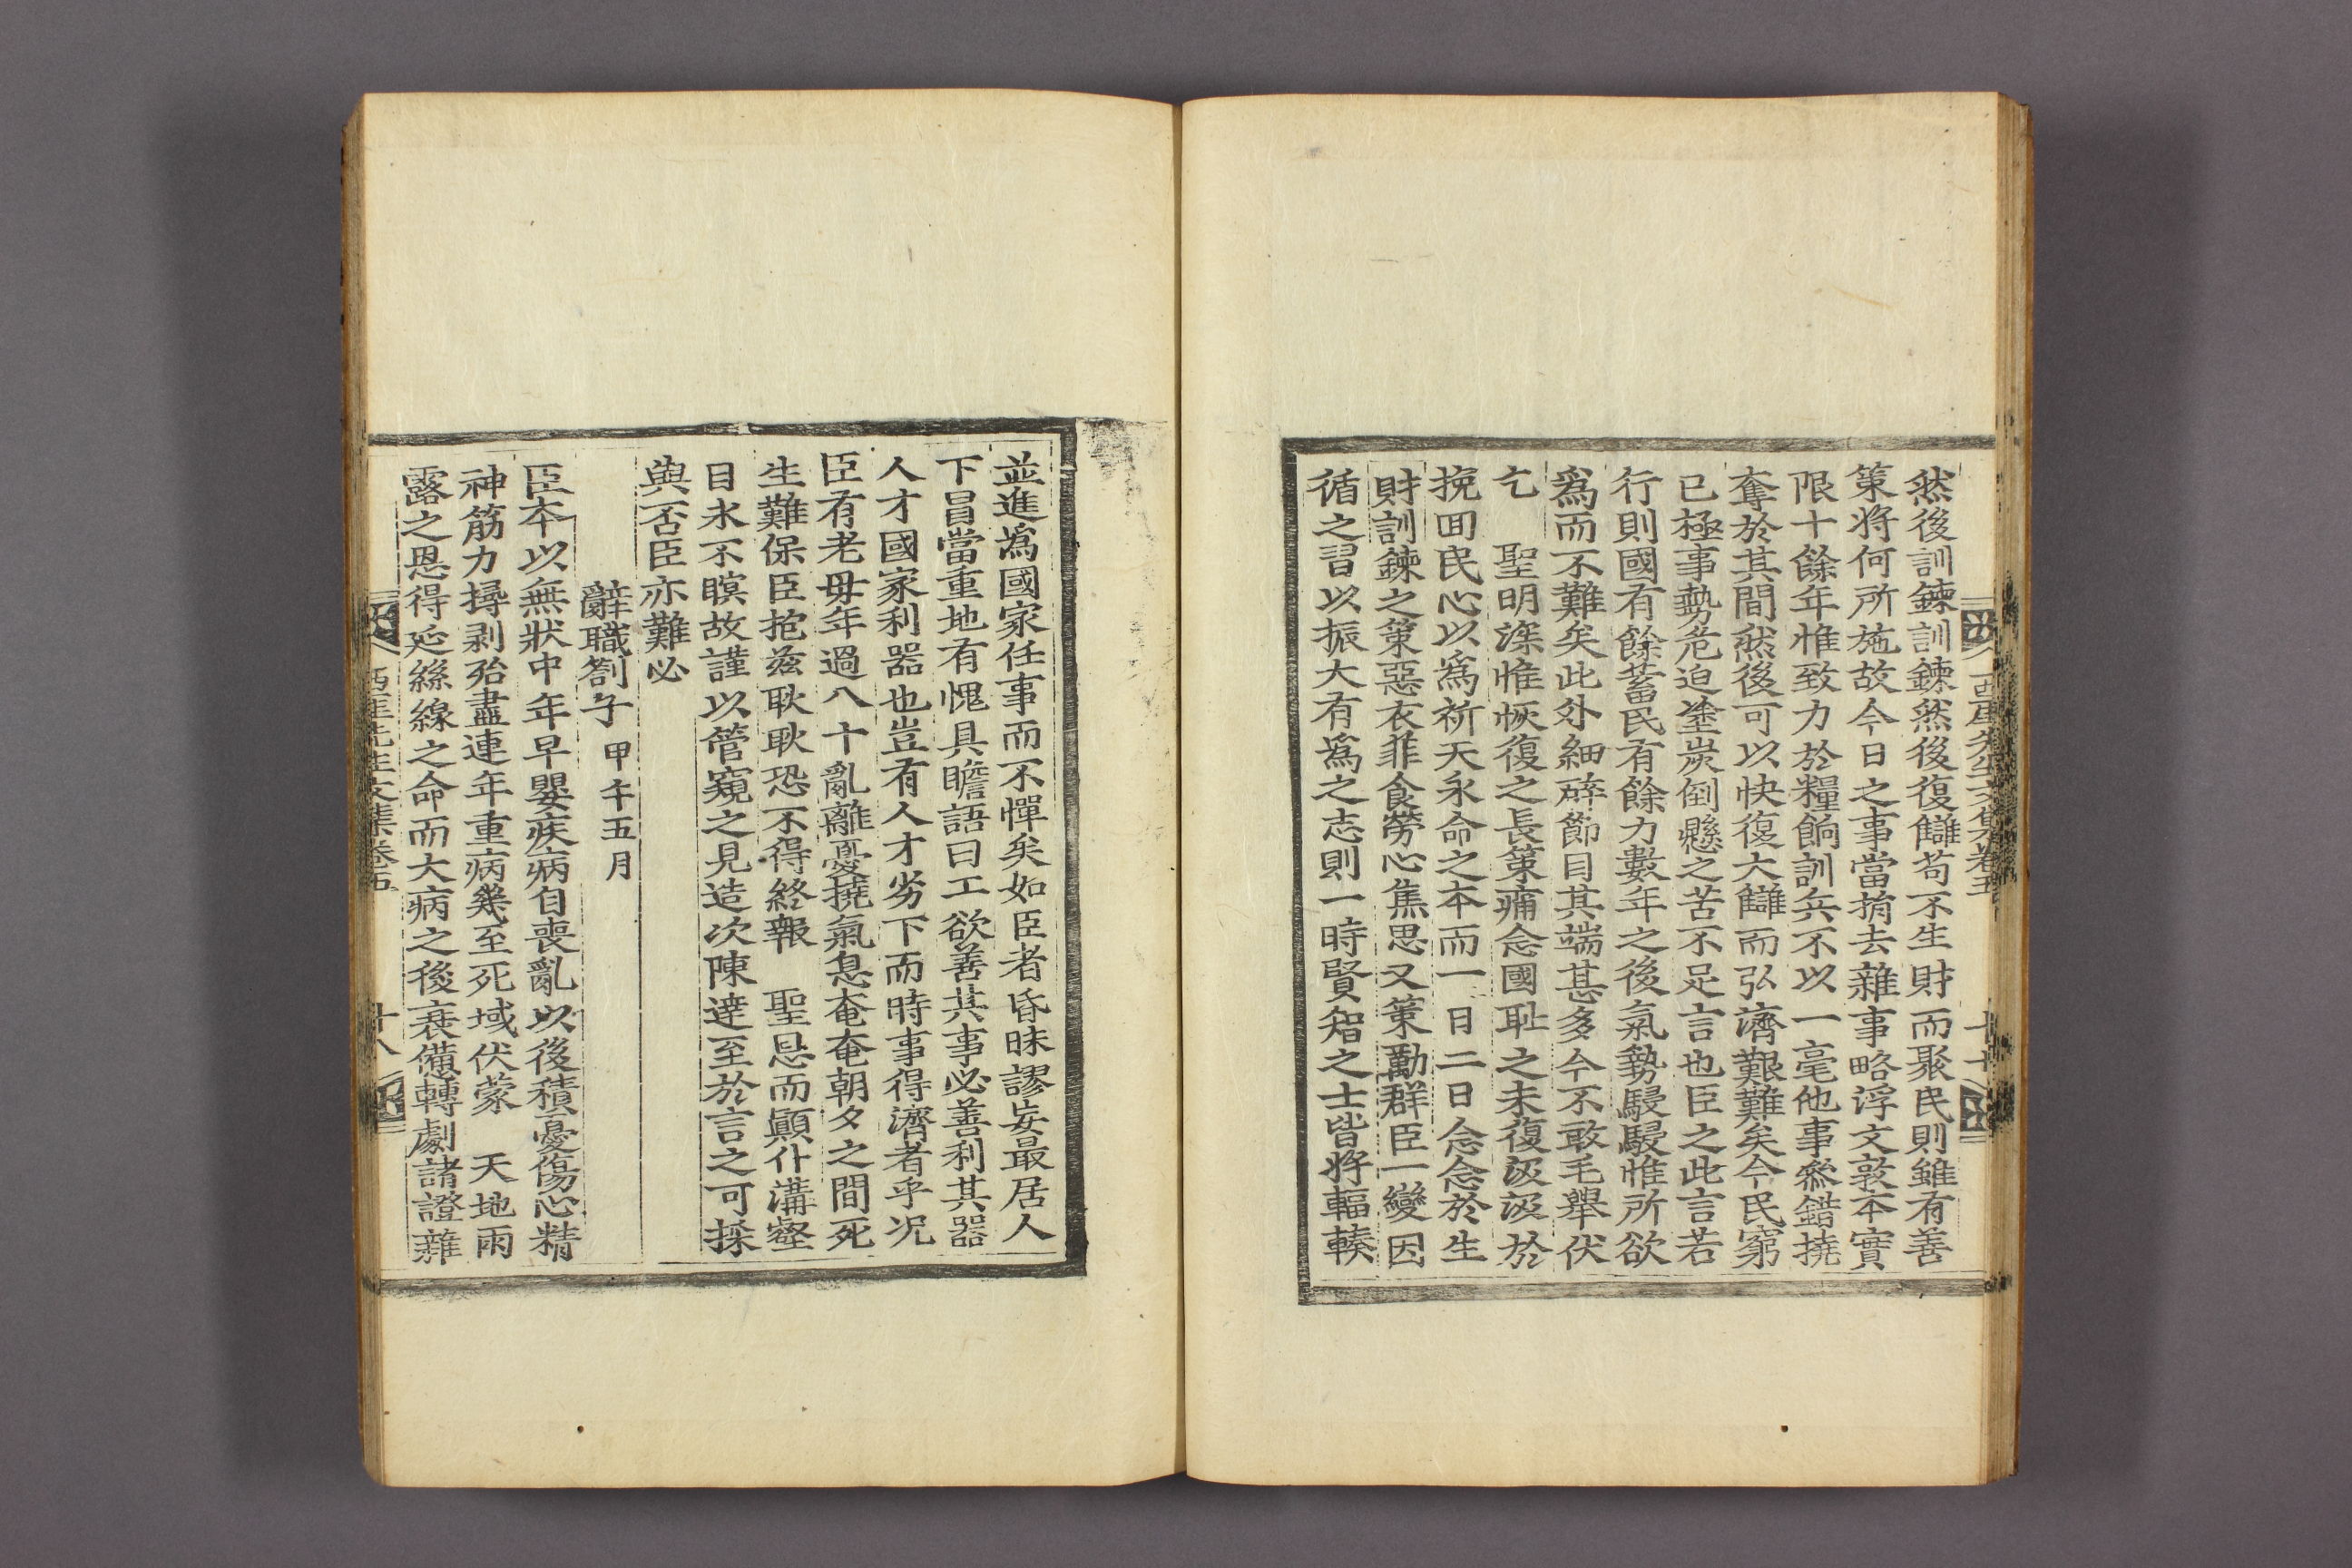 西厓先生文集卷五
十七
然後訓鍊訓鍊然後復讎苟不生財而聚民則雖有善
策將何所施故今日之事當捐去雜事略浮文敦本實
限十餘年惟致力於糧餉訓兵不以一毫他事叅錯撓
奪於其間然後可以快復大讎而弘濟艱難矣今民窮
已極事勢危迫塗炭倒懸之苦不足言也臣之此言若
行則國有餘蓄民有餘力數年之後氣勢駸駸惟所欲
爲而不難矣此外細碎節目其端甚多今不敢毛擧伏
乞　聖明深惟恢復之長策痛念國恥之未復汲汲於
挽回民心以爲祈天永命之本而一日二日念念於生
財訓鍊之策惡衣菲食勞心焦思又策勵群臣一變因
循之習以振大有爲之志則一時賢智之士皆將輻輳
並進爲國家任事而不憚矣如臣者昏昧謬妄最居人
下冒當重地有愧具瞻語曰工欲善其事必善利其器
人才國家利器也豈有人才劣下而時事得濟者乎况
臣有老母年過八十亂離憂撓氣息奄奄朝夕之間死
生難保臣抱玆耿耿恐不得終報　聖恩而顚仆溝壑
目永不瞑故謹以管窺之見造次陳達至於言之可採
與否臣亦難必
辭職劄子 甲午五月
臣本以無狀中年早嬰疾病自喪亂以後積憂傷心精
神筋力撏剥殆盡連年重病幾至死域伏蒙　天地雨
露之恩得延絲線之命而大病之後衰憊轉劇諸證雜
西厓先生文集卷五
十八